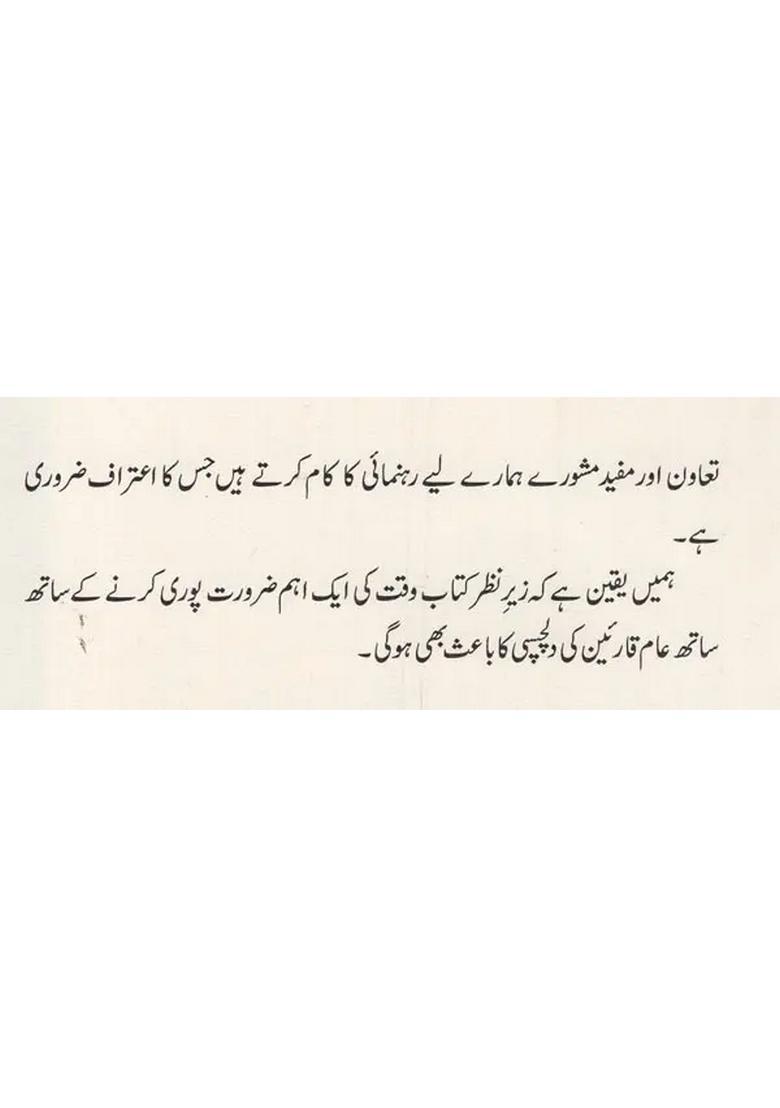 تعاون اور مفید مشورے ہمارے لیے رہنمائی کا کام کرتے ہیں جس کا اعتراف ضروری
ہے۔
ہمیں یقین ہے کہ زیرِ نظر کتاب وقت کی ایک اہم ضرورت پوری کرنے کے ساتھ
ساتھ عام قارئین کی دلچسپی کا باعث بھی ہوگی۔